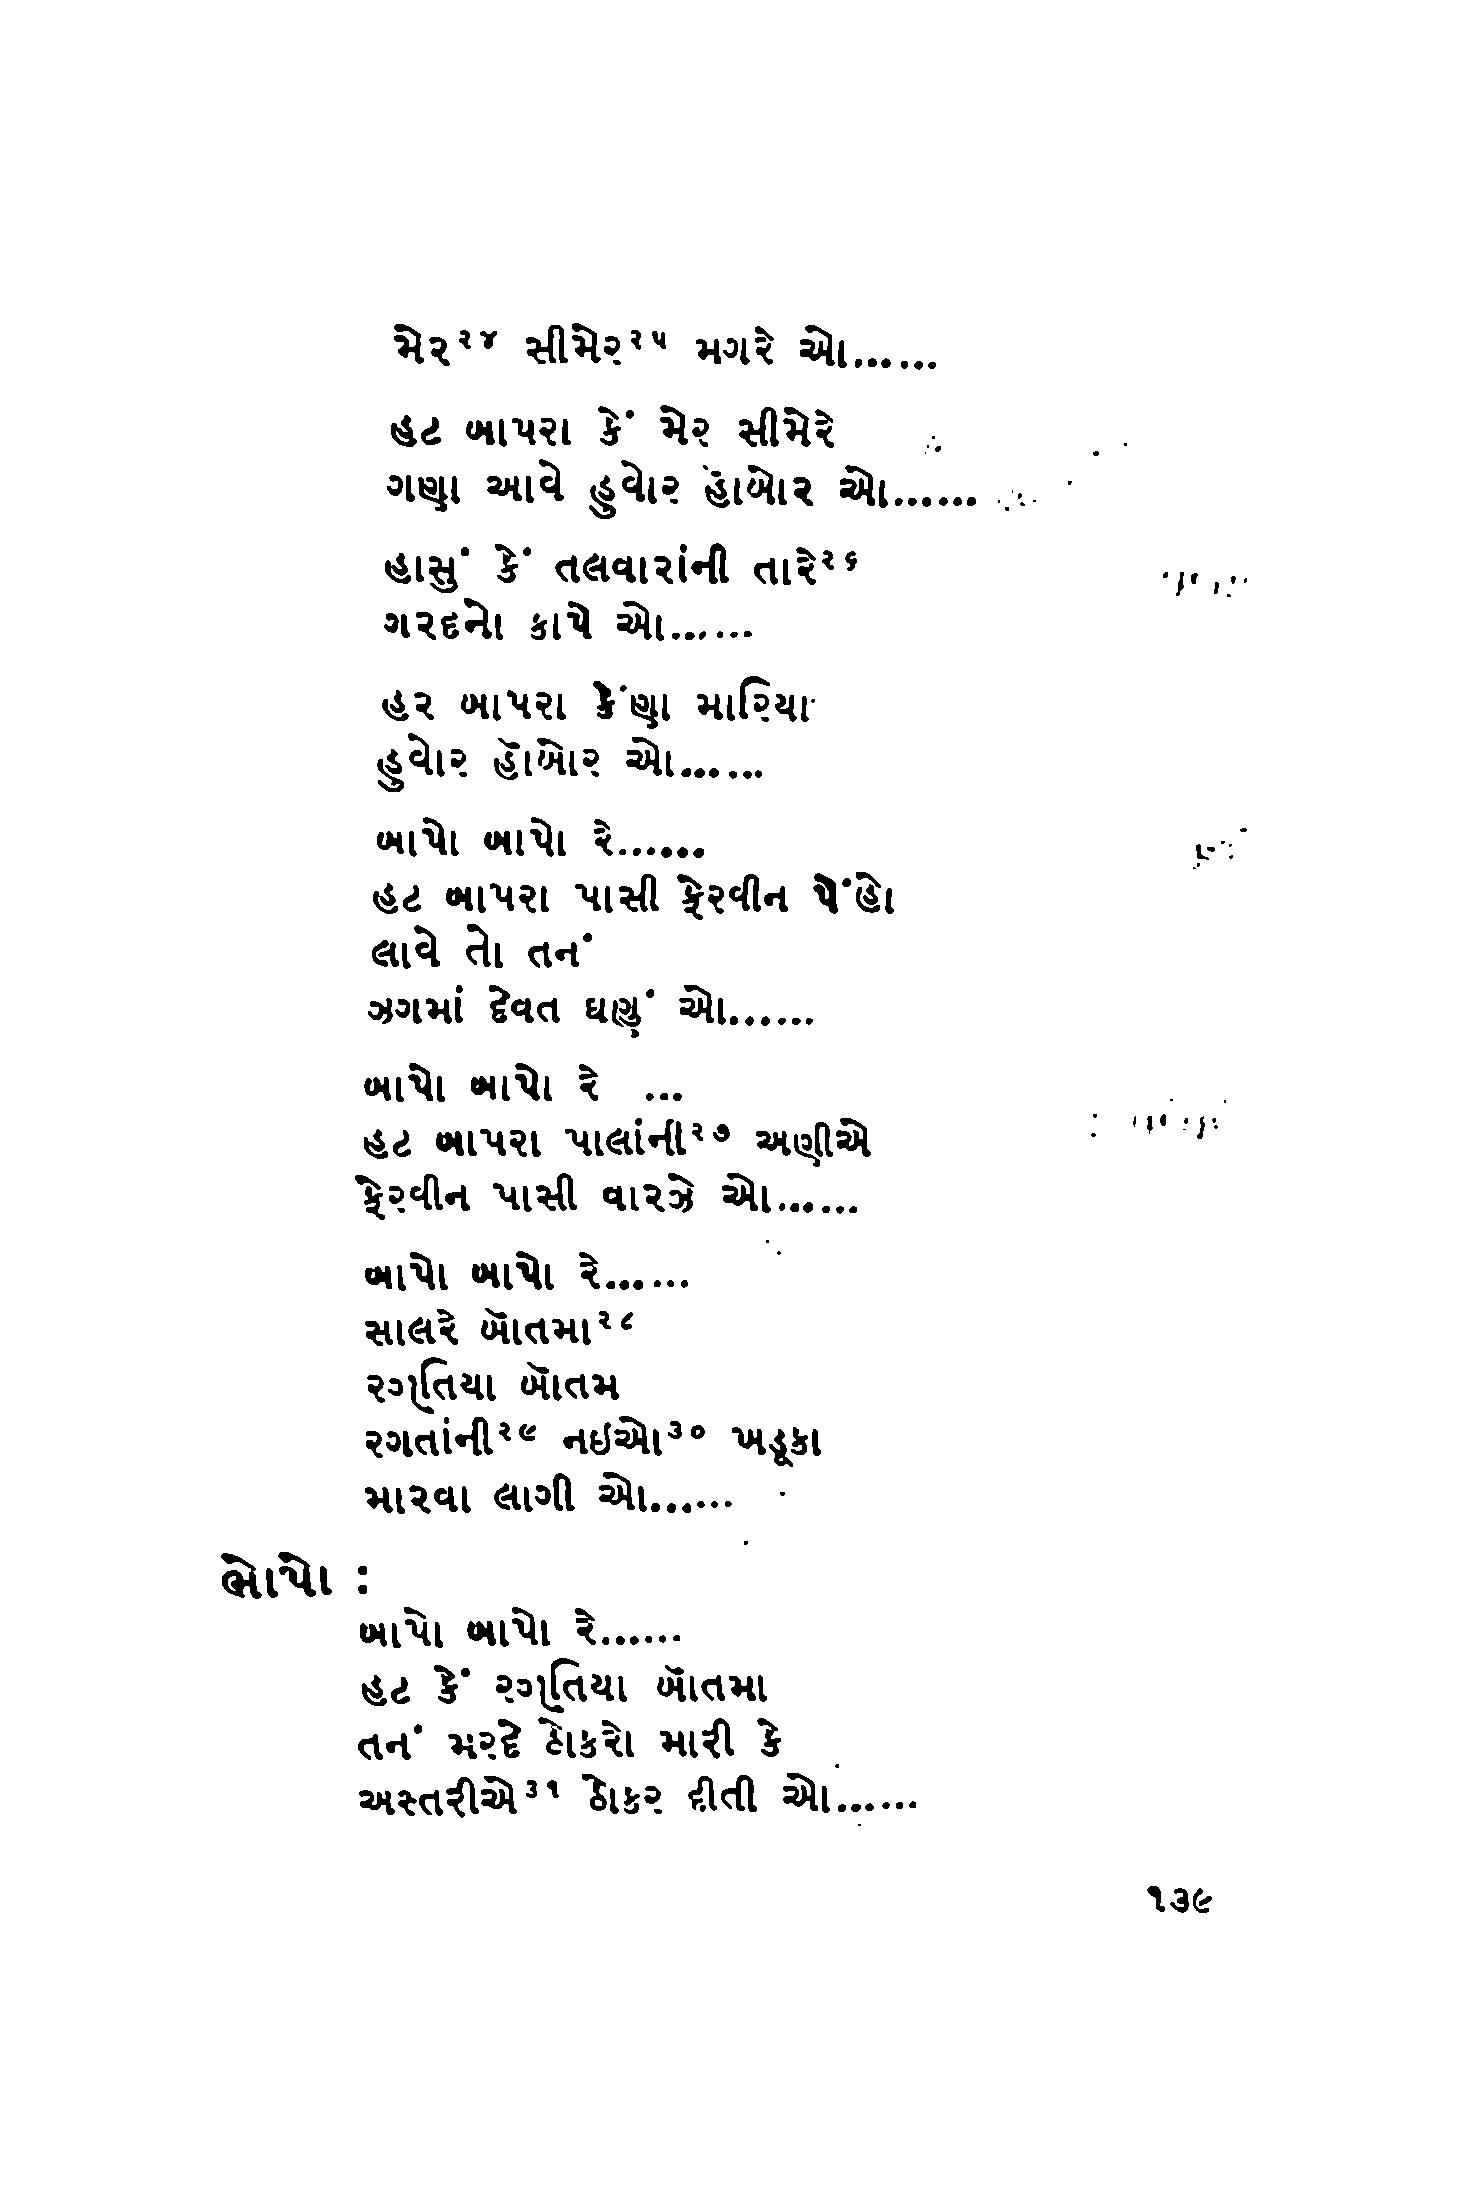 મેર૨૪ સીમેર૨૫ મગરે ઓ......
હટ બાપરા કેં મેર સીમેરે
ગણા આવે હુવોર હૉબોર ઓ......
હાસું કેં તલવારાંની તારે૨૬
ગરદનો કાપે ઓ......
હર બાપરા કેંણા મારિયા
હુવોર હૉબોર ઓ......
બાપો બાપો રે......
હટ બાપરા પાસી ફેરવીન પેંહો
લાવે તો તનં
ઝગમાં દેવત ઘણું ઓ......
બાપો બાપો રે ...
હટ બાપરા પાલાંની૨૭ અણીએ
ફેરવીન પાસી વારઝે ઓ......
બાપો બાપો રે......
સાલરે બૉતમા૨૮
રગ્તિયા બૉતમ
રગતાંની૨૯ નઇઓ૩૦ ખડૂકા
મારવા લાગી ઓ......
ભોપો :
બાપો બાપો રે......
હટ કેં રગ્તિયા બૉતમા
તનં મરદે ઠોકરો મારી કે
અસ્તરીએ૩૧ ઠોકર દીતી ઓ......
૧૩૯